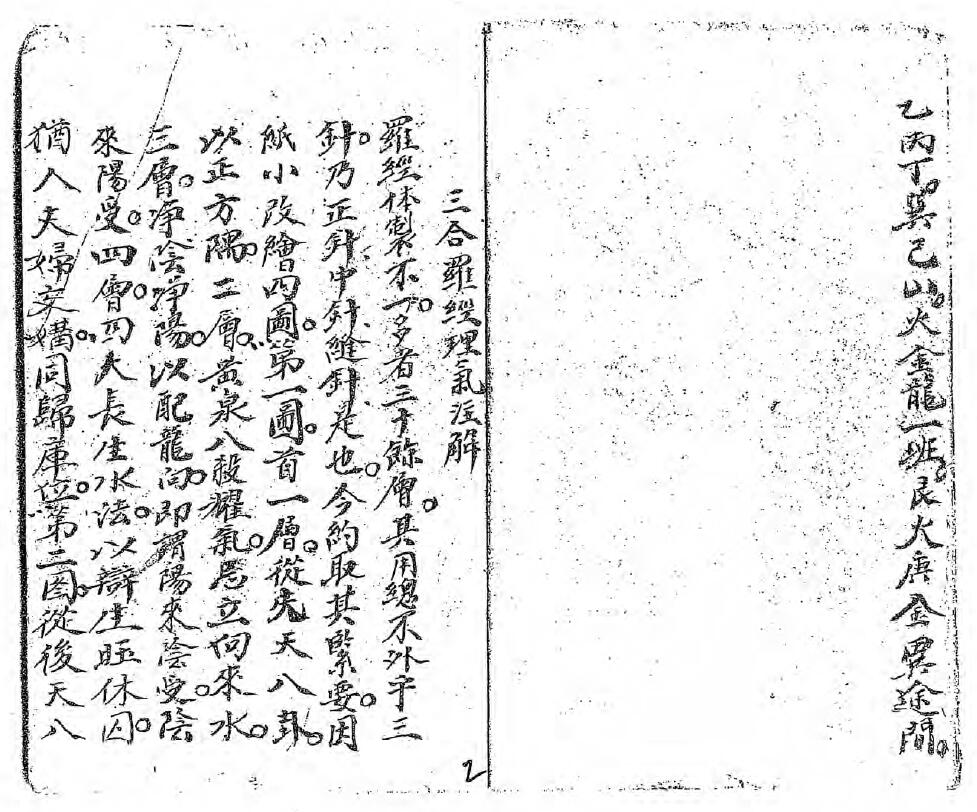 乙丙丁。巽巳山。火金龍一班。艮火庚金異途間。
三合羅經理氣注解
羅經体製不一。多者三十餘層。其用總不外乎三
針。乃正針中針縫針是也。今約取其緊要。因
紙小改繪四圖。第一圖。首一層。從先天八卦。
以正方隅。二層。黃泉八殺耀氣。忌立向來水。
三層。淨陰淨陽。以配龍向。即謂陽來陰受。陰
來陽受。四層。四大長生水法。以辯生旺休囚。
猶人夫婦交媾。同歸庫位。第二图。從後天八
2